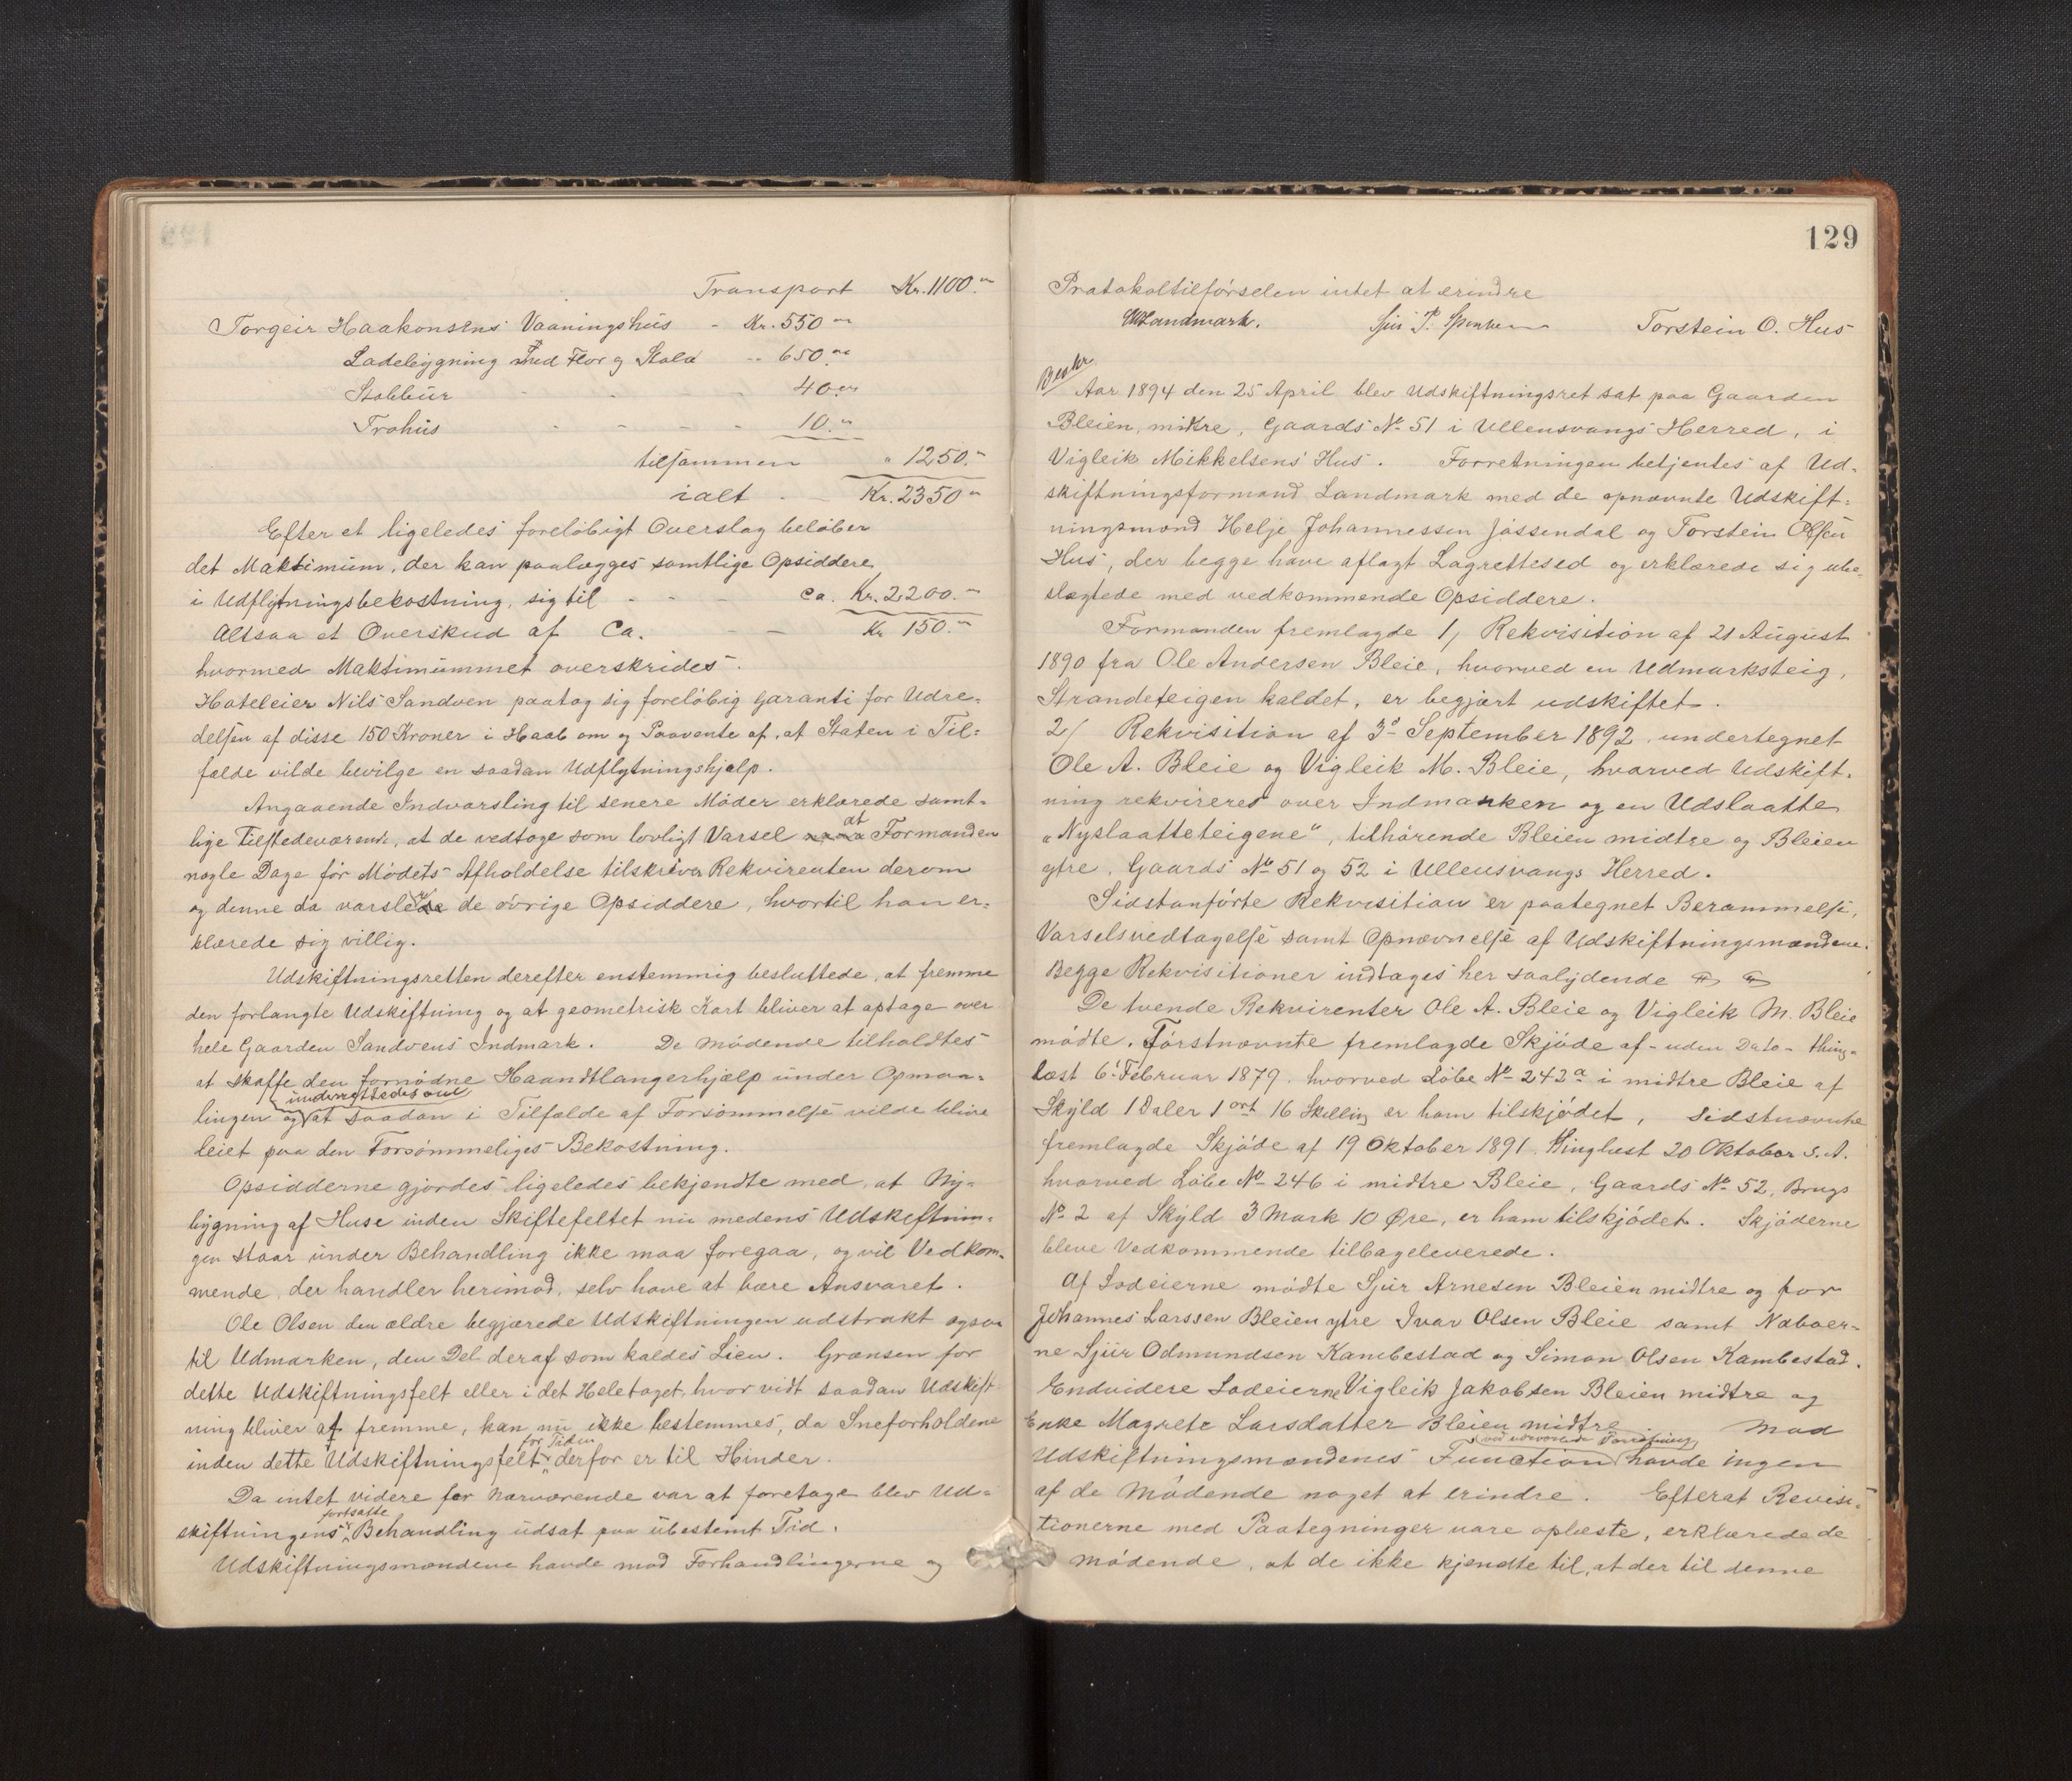 Transport Kr. 1100.„
Torgeir Haakonsens Vaaningshus - Kr. 550 „
Ladebygning med Flor og Stald „ 650.„
Stabbur - - - - 40.„
Trohus - - - - - 10.„
tilsammen „ 1250.„
ialt - - Kr. 2350 „
Efter et ligeledes foreløbigt Overslag beløber
det Maksimum, der kan paalægges samtlige Opsiddere
i Udflytningsbekostning, sig til - - - ca. Kr. 2,200.„
Altsaa et Overskud af Ca. - - Kr 150.„
hvormed Maksimummet overskrides.
Hoteleier Nils Sandven paatog sig foreløbig Garanti for Udre-
delsen af disse 150 Kroner i Haab om og Paavente af, at Staten i Til-
fælde vilde bevilge en saadan Udflytningshjelp.
Angaaende Indvarsling til senere Møder erklærede samt-
lige Tilstedeværende, at de vedtoge som lovligt Varsel at Formanden
nogle Dage før Mødets Afholdelse tilskriver Rekvirenten derom
og denne da varsler de øvrige Opsiddere, hvortil han er-
klærede sig villig.
Udskiftningsretten derefter enstemmig besluttede, at fremme
den forlangte Udskiftning og at geometrisk Kart bliver at optage over
hele Gaarden Sandvens Indmark. De mødende tilholdtes
at skaffe den fornødne Haandtlangerhjælp under Opmaa-
underrettedes om
lingen og at saadan i Tilfælde af Forsømmelse vilde blive
leiet paa den Forsømmeliges Bekostning.
Opsidderne gjordes ligeledes bekjendte med, at Ny-
bygning af Huse inden Skiftefeltet nu medens Udskiftnin-
gen staar under Behandling ikke maa foregaa, og vil Vedkom-
mende, der handler herimod, selv have at bære Ansvaret.
Ole Olsen den ældre begjærede Udskiftningen udstrakt ogsaa
til Udmarken, den Del deraf som kaldes Lien. Grænsen for
dette Udskiftningsfelt eller i det Heletaget, hvorvidt saadan Udskift-
ning bliver at fremme, kan nu ikke bestemmes, da Sneforholdene
for Tiden
inden dette Udskiftningsfelt derfor er til Hinder.
Da intet videre for nærværende var at foretage blev Ud-
fortsatte
skiftningens Behandling udsat paa ubestemt Tid.
Udskiftningsmændene havde mod Forhandlingerne og
129
Protokoltilførselen intet at erindre
Landmark. Sjur P. Torstein O. Hus
Aar 1894 den 25 April blev Udskiftningsret sat paa Gaarden
Bleien, mittre, Gaards No 51 i Ullensvangs Herred, i
Vigleik Mikkelsens Hus. Forretningen betjentes af Ud-
skiftningsformand Landmark med de opnævnte Udskift-
ningsmænd Helje Johannessen Jøssendal og Torstein Olsen
Hus, der begge have aflagt Lagrettesed og erklærede sig ube-
slægtede med vedkommende Opsiddere.
Formanden fremlagde 1/ Rekvisition af 21 August
1890 fra Ole Andersen Bleie, hvorved en Udmarksteig,
Strandeteigen kaldet, er begjært udskiftet.
2/ Rekvisition af 3d September 1892 undertegnet
Ole A. Bleie og Vigleik M. Bleie, hvorved Udskift-
ning rekvireres over Indmarken og en Udslaatte
„Nyslaatteteigene“, tilhørende Bleien midtre og Bleien
ytre, Gaards No 51 og 52 i Ullensvangs Herred.
Sidstanførte Rekvisition er paategnet Berammelse,
Varselsvedtagelse samt Opnævnelse af Udskiftningsmændene.
Begge Rekvisitioner indtages her saalydende
De tvende Rekvirenter Ole A. Bleie og Vigleik M. Bleie
mødte. Førstnævnte fremlagde Skjøde af - uden Dato - thing-
læst 6. Februar 1879. hvorved Løbe No 242a i midtre Bleie af
Skyld 1 Daler 1 ort 16 Skilling er ham tilskjødet, sidstnævnte
fremlagde Skjøde af 19 Oktober 1891. thinglæst 20 Oktober s.A.
hvorved Løbe No 246 i midtre Bleie, Gaards No 52, Brugs
No 2 af Skyld 3 Mark 10 Øre, er ham tilskjødet. Skjøderne
bleve Vedkommende tilbageleverede.
Af Lodeierne mødte Sjur Arnesen Bleien midtre og for
Johannes Larssen Bleien ytre Ivar Olsen Bleie samt Naboer-
ne Sjur Odmundsen Kambestad og Simon Olsen Kambestad.
Endvidere Lodeierne Vigleik Jakobsen Bleien midtre og
Enke Magrete Larsdatter Bleien midtre Mod
ved nærværende Forretning
Udskiftningsmændenes Function havde ingen
af de Mødende noget at erindre. Efterat Revisi-
tionerne med Paategninger vare oplæste, erklærede de
mødende, at de ikke kjendte til, at der til denne